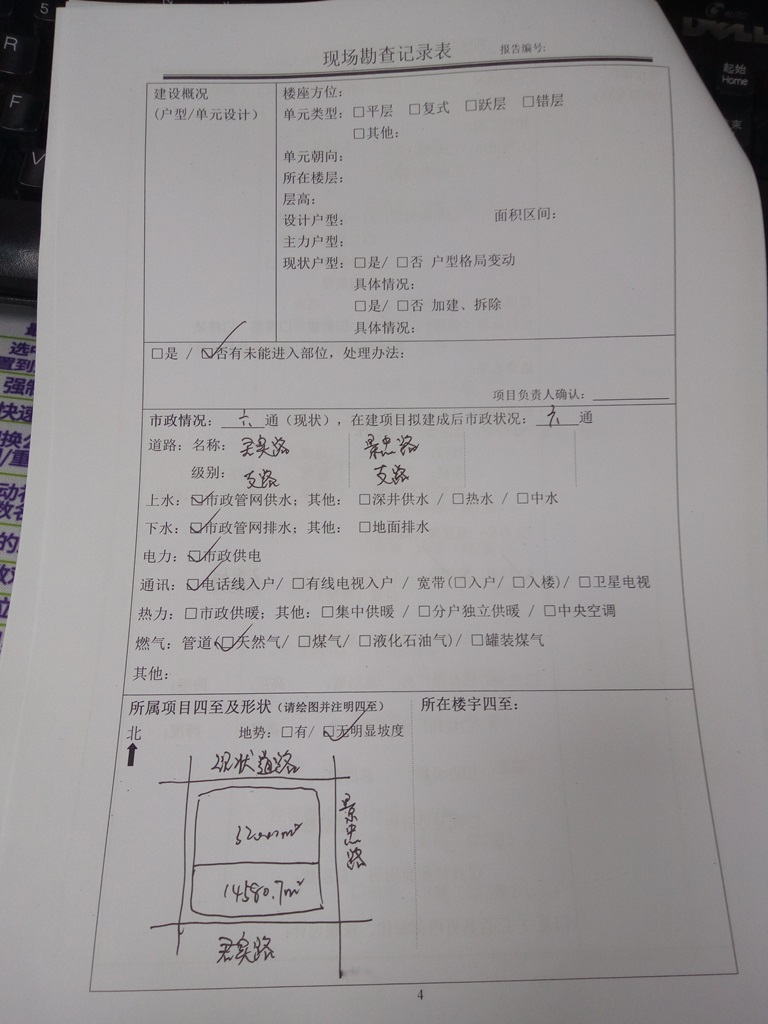 现场勘查记录表 报告编号:
建设概况
(户型/单元设计)
楼座方位:
单元类型: □平层 □复式 □跃层 □错层
□其他:
单元朝向:
所在楼层:
层高:
设计户型: 面积区间:
主力户型:
现状户型: □是/ □否 户型格局变动
具体情况:
□是/ □否 加建、拆除
具体情况:
□是 / ☑否有未能进入部位, 处理办法:
项目负责人确认:
市政情况: 六 通 (现状), 在建项目拟建成后市政状况: 六 通
道路: 名称: 君实路 景忠路
级别: 支路 支路
上水: ☑市政管网供水; 其他: □深井供水 / □热水 / □中水
下水: ☑市政管网排水; 其他: □地面排水
电力: ☑市政供电
通讯: ☑电话线入户/ □有线电视入户 / 宽带(□入户/ □入楼)/ □卫星电视
热力: □市政供暖; 其他: □集中供暖 / □分户独立供暖 / □中央空调
燃气: 管道(☑天然气/ □煤气/ □液化石油气)/ □罐装煤气
其他:
所属项目四至及形状 (请绘图并注明四至)
北 地势: □有/ ☑无明显坡度
所在楼宇四至:
现状道路
景忠路
14580.7m²
君实路
4
R
F
V
5
起始
Home
DELL